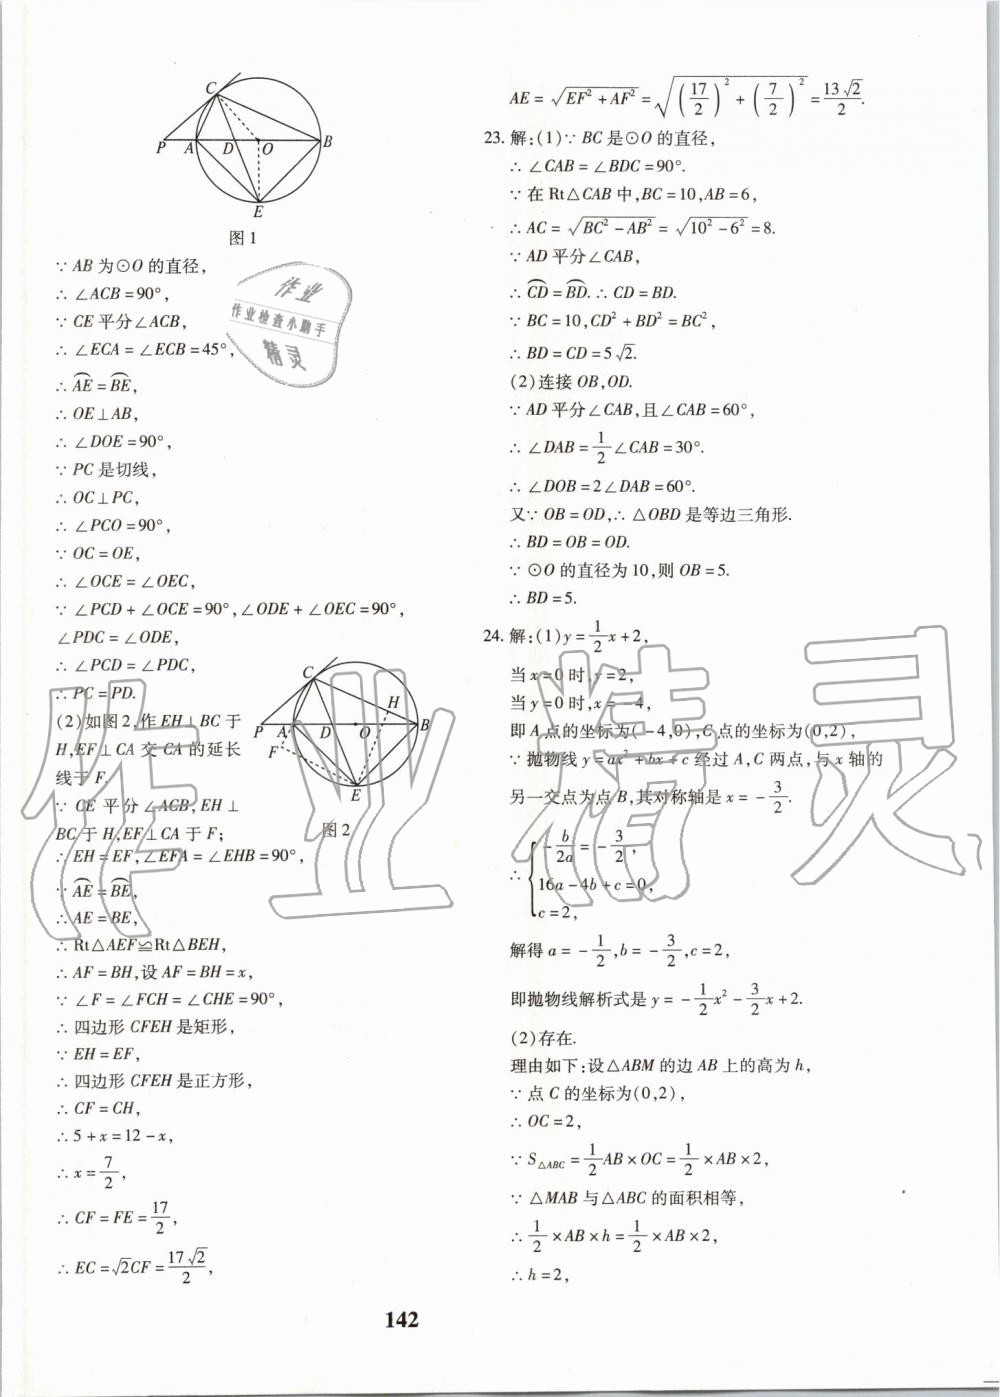 C
P A D O B
E
图1
∵ AB 为⊙O 的直径，
∴ ∠ACB=90°，
∵ CE 平分∠ACB，
∴ ∠ECA=∠ECB=45°，
∴ A͡E=B͡E，
∴ OE⊥AB，
∴ ∠DOE=90°，
∵ PC 是切线，
∴ OC⊥PC，
∴ ∠PCO=90°，
∵ OC=OE，
∴ ∠OCE=∠OEC，
∵ ∠PCD+∠OCE=90°，∠ODE+∠OEC=90°，
∠PDC=∠ODE，
∴ ∠PCD=∠PDC，
∴ PC=PD.
(2)如图2，作 EH⊥BC 于
H，EF⊥CA 交 CA 的延长
线于 F.
∵ CE 平分∠ACB，EH⊥
BC 于 H，EF⊥CA 于 F；
C
H
P A D O B
F
E
图2
∴ EH=EF，∠EFA=∠EHB=90°，
∵ A͡E=B͡E，
∴ AE=BE，
∴ Rt△AEF≌Rt△BEH，
∴ AF=BH，设 AF=BH=x，
∵ ∠F=∠FCH=∠CHE=90°，
∴ 四边形 CFEH 是矩形，
∵ EH=EF，
∴ 四边形 CFEH 是正方形，
∴ CF=CH，
∴ 5+x=12-x，
∴ x=7/2，
∴ CF=FE=17/2，
∴ EC=√2CF=17√2/2，
AE=√(EF²+AF²)=√((17/2)²+(7/2)²)=13√2/2.
23. 解：(1)∵ BC 是⊙O 的直径，
∴ ∠CAB=∠BDC=90°.
∵ 在 Rt△CAB 中，BC=10，AB=6，
∴ AC=√(BC²-AB²)=√(10²-6²)=8.
∵ AD 平分∠CAB，
∴ C͡D=B͡D. ∴ CD=BD.
∵ BC=10，CD²+BD²=BC²，
∴ BD=CD=5√2.
(2)连接 OB，OD.
∵ AD 平分∠CAB，且∠CAB=60°，
∴ ∠DAB=1/2∠CAB=30°.
∴ ∠DOB=2∠DAB=60°.
又∵ OB=OD，∴ △OBD 是等边三角形.
∴ BD=OB=OD.
∵ ⊙O 的直径为10，则 OB=5.
∴ BD=5.
24. 解：(1)y=1/2x+2，
当 x=0 时，y=2，
当 y=0 时，x=-4，
即 A 点的坐标为(-4,0)，C 点的坐标为(0,2)，
∵ 抛物线 y=ax²+bx+c 经过 A，C 两点，与 x 轴的
另一交点为点 B，其对称轴是 x=-3/2.
∴ { -b/2a=-3/2，
16a-4b+c=0，
c=2，
解得 a=-1/2，b=-3/2，c=2，
即抛物线解析式是 y=-1/2x²-3/2x+2.
(2)存在.
理由如下：设△ABM 的边 AB 上的高为 h，
∵ 点 C 的坐标为(0,2)，
∴ OC=2，
∵ S△ABC=1/2AB×OC=1/2×AB×2，
∵ △MAB 与△ABC 的面积相等，
∴ 1/2×AB×h=1/2×AB×2，
∴ h=2，
142
作业
作业检查小助手
精灵
作业精灵